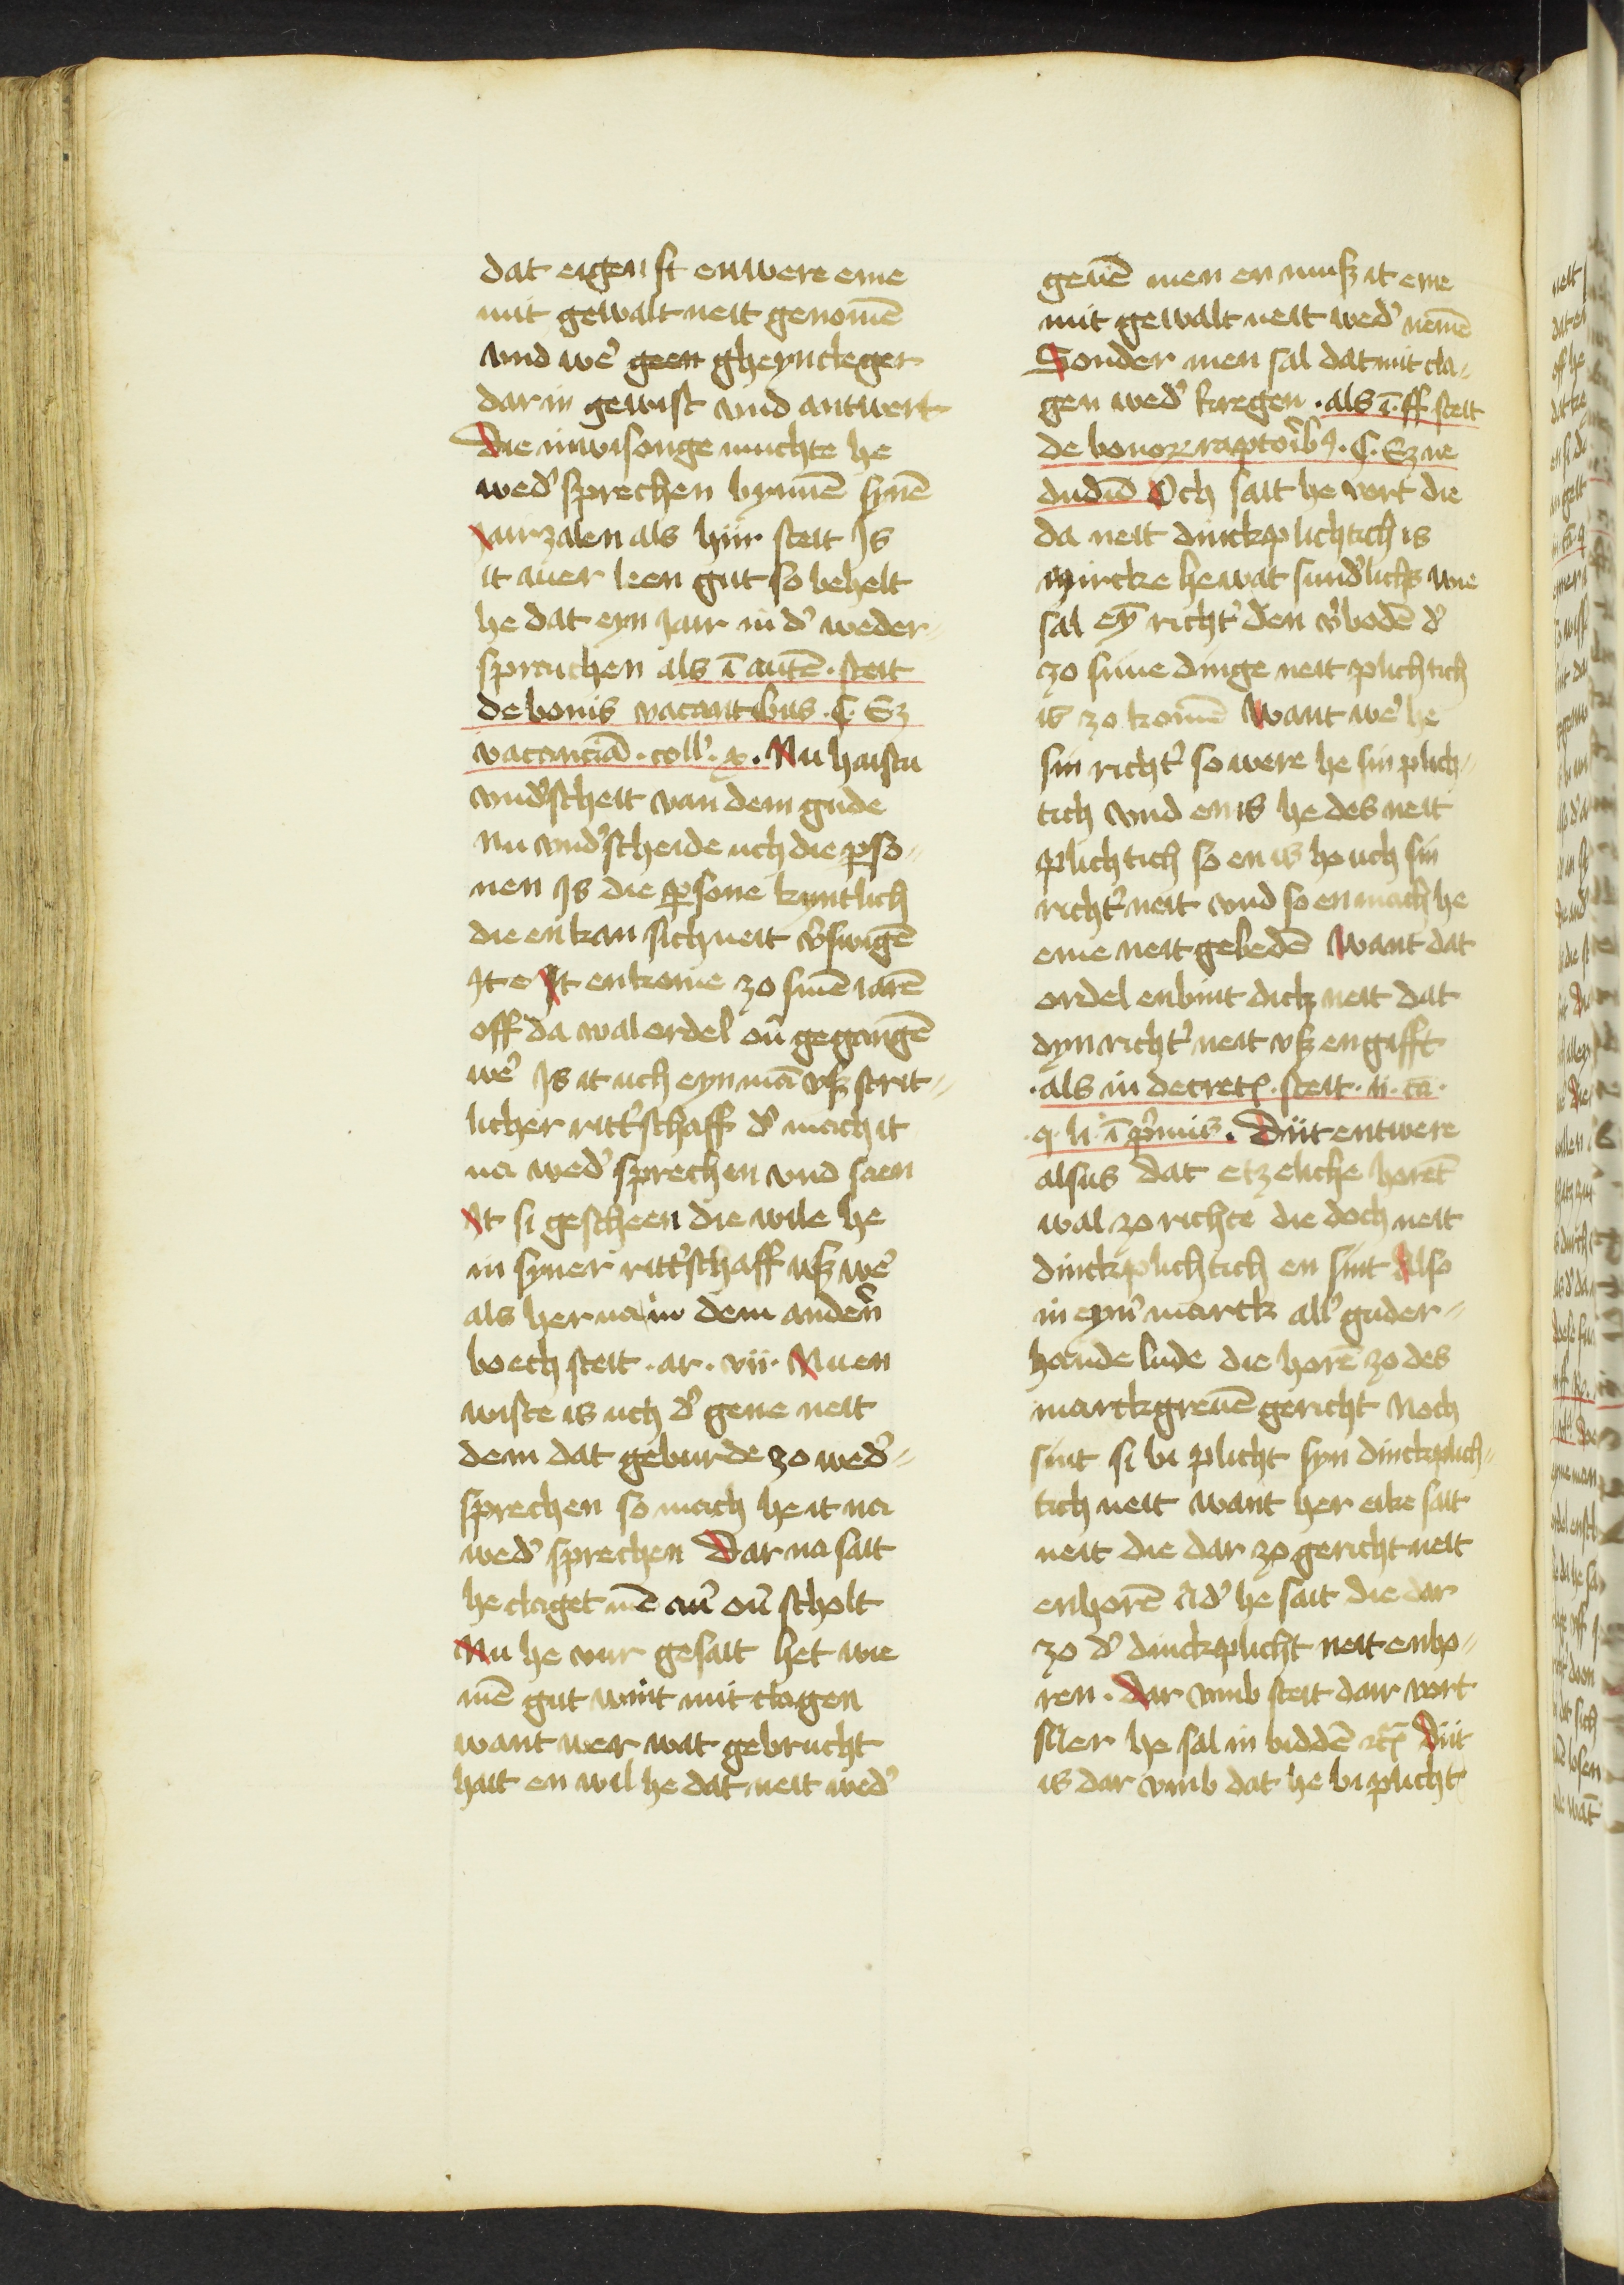 dat eigen st enwere eme
mit gewalt neit genomē
vnd we᷑ geen gheyncleger
dar in gewist vnd antwert
Die inwisonge muchte he
wed᷑ sprechen bynnē synē
Jairzalen als hiir steit Is
it auer leen gut so behelt
he dat eyn Jair in d᷑ weder-
sprauchen als ī autē . steit
de bonis vacantibus . C. Ez
vacanciā . coll᷑ . x . Nu haistu
vnd᷑scheit van dem gude
Nu vnd᷑scheide uch die p̲so-
nen Is die p̲sone kyntlich
die enkan sich neit v᷑swigē
It e It enkome zo sinē iarē
off da wal ordel ou᷑ gegangē
we᷑ Is it uch eyn mā vsz strit-
licher ritt᷑schaff d᷑ mach it
na wed᷑ sprechen vnd saen
It si gescheen die wile he
in syner ritt᷑schaff vsz we᷑
als her na in dem anden᷑
boech steit . ar . vii . Nu en
wiste is uch d᷑ gene neit
dem dat geburde zo wed᷑-
sprechen so mach he it na
wed᷑ sprechen Dar na sait
he claget mē au᷑ ou᷑ scholt
Nu he vur gesait het wie
mē gut wint mit clagen
want wer wat gebrucht
hait en wil he dat neit wed᷑
geuē men en musz it eme
mit gewalt neit wed᷑ nemē
Sonder men sal dat mit cla-
gen wed᷑ kregen . als ī . ff steit
de bonoꝝ raptoribꝯ . C. Ez ne
dudū Och sait he vort die
da neit dinckplichtich is
Mircke he wat sund᷑lichs wie
sal ey̅ richt᷑ den v᷑bodē d᷑
zo sime dinge neit plichtich
is zo komē Want we᷑ he
sin richt᷑ so were he sin plich-
tich vnd en is he des neit
plichtich so en is he uch sin
richt᷑ neit vnd so en mach he
eme neit gebedē Want dat
ordel enbint dich neit dat
dyn richt᷑ neit vsz engifft
. als in decret̄ . steit . ii . ca .
. q . li᷑ ī p᷑mis . Diit entwere
alsus dat etzeliche horēt
wal zo richte die doch neit
dinckplichtich en sint Also
in eyn᷑ marck all᷑ guder-
hande lude die horē zo des
marckgreuē gericht Noch
sint si bi plicht syn dinckplich-
tich neit want her eike sait
neit die dar zo gericht neit
enhorē Ad᷑ he sait die dar
zo d᷑ dinckplicht neit enho-
ren . Dar vmb steit dar vort
Mer he sal in biddē ⁊c̄ Diit
is dar vmb dat he bi plicht